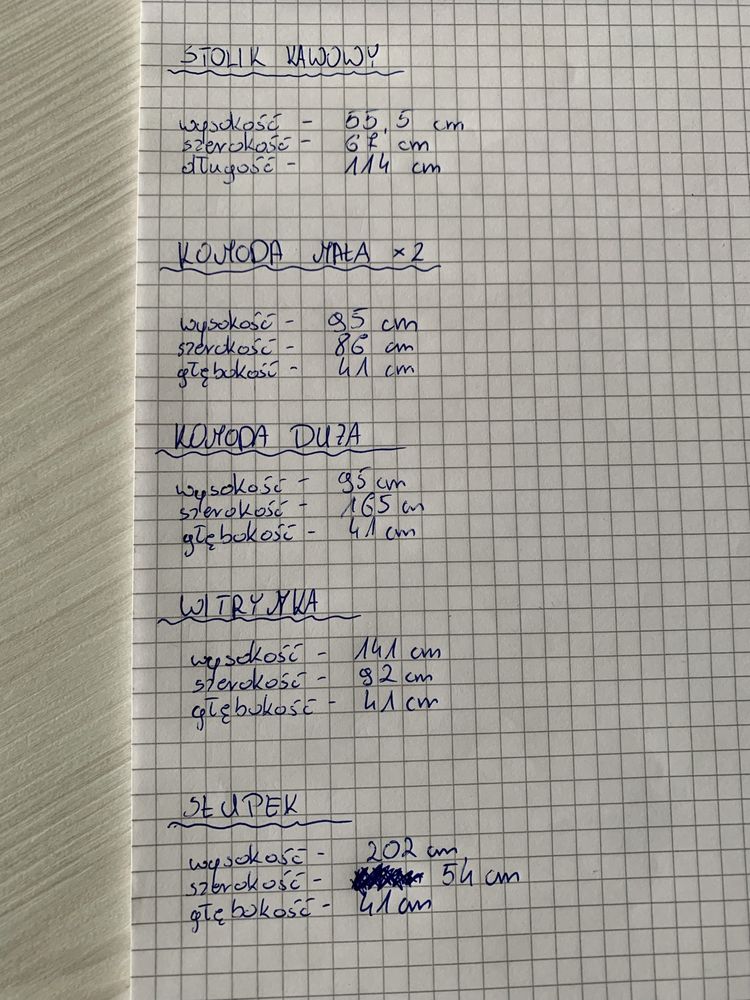 STOLIK KAWOWY
wysokość - 55,5 cm
szerokość - 67 cm
długość - 114 cm
KOMODA MAŁA x2
wysokość - 95 cm
szerokość - 86 cm
głębokość - 41 cm
KOMODA DUŻA
wysokość - 95 cm
szerokość - 165 cm
głębokość - 41 cm
WITRYNKA
wysokość - 141 cm
szerokość - 92 cm
głębokość - 41 cm
SŁUPEK
wysokość - 202 cm
szerokość - 54 cm
głębokość - 41 cm